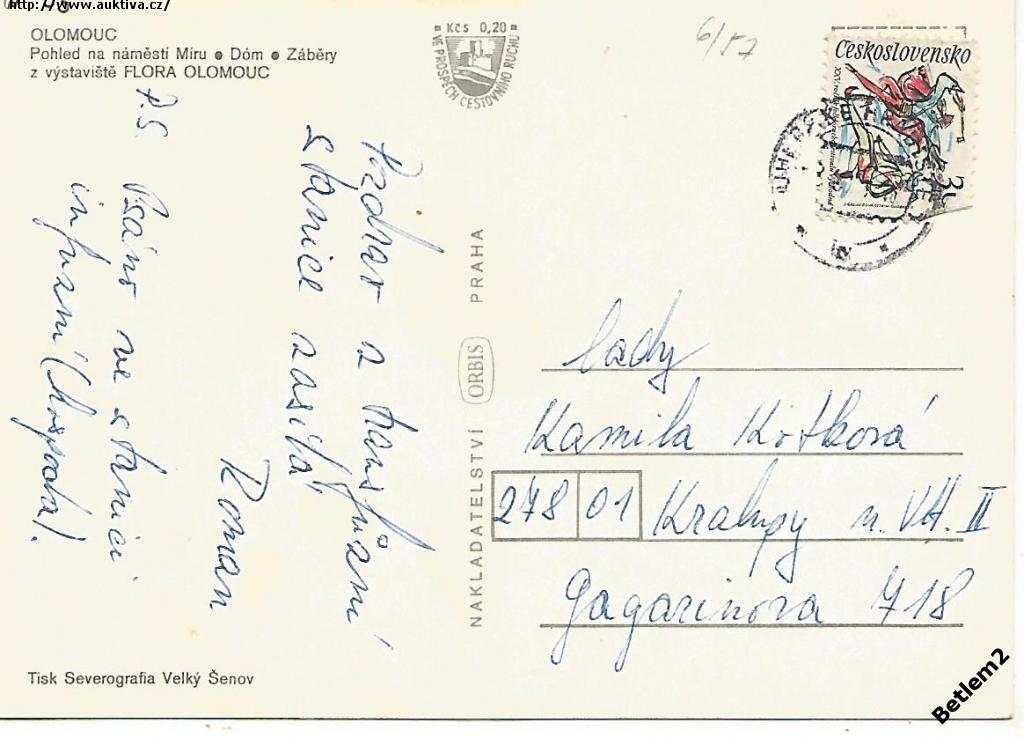 http://www.auktiva.cz/
OLOMOUC
Pohled na náměstí Míru ● Dóm ● Záběry
z výstaviště FLORA OLOMOUC
Kčs 0,20
VE PROSPĚCH CESTOVNÍHO RUCHU
6/57
Československo
Pozdrav z transfúzní
stanice zasílá
Roman
P.S. Psáno ve stanici
infuzní (hospoda)!
NAKLADATELSTVÍ ORBIS PRAHA
Lady
Kamila Kotková
278 01 Kralupy n. Vlt. II
Gagarinova 718
Tisk Severografia Velký Šenov
Betlem2